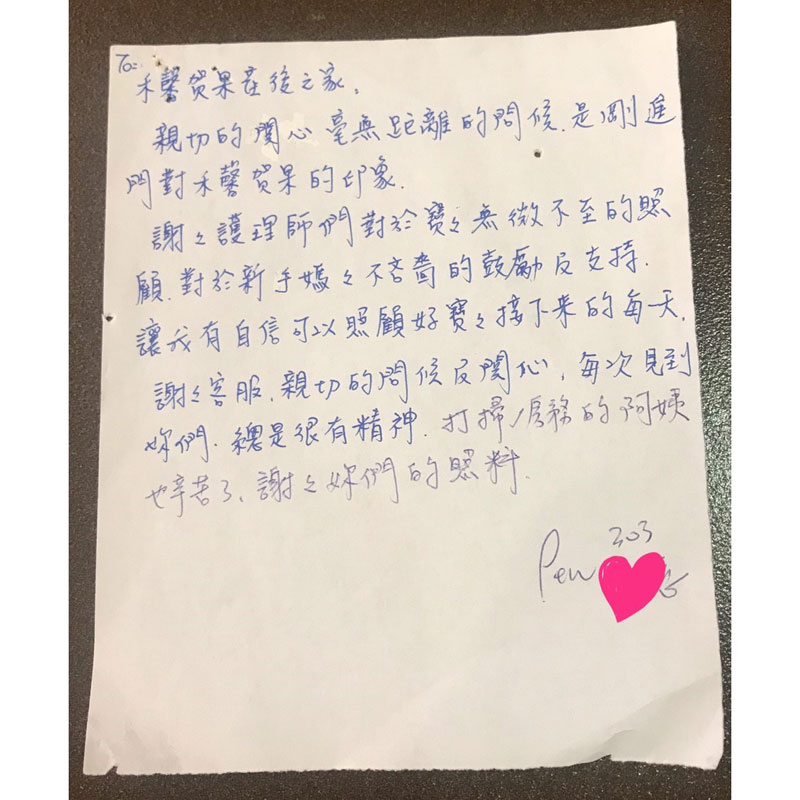 To:
禾馨賀果產後之家,
親切的関心毫無距離的問候.是剛進
門對禾馨賀果的印象.
謝々護理師們對於寶々無微不至的照
顧.對於新手媽々不吝嗇的鼓勵及支持.
讓我有自信可以照顧好寶々接下来的每天.
謝々客服.親切的問候及関心,每次見到
妳們.總是很有精神.打掃/房務的阿姨
也辛苦了、謝々妳們的照料.
303